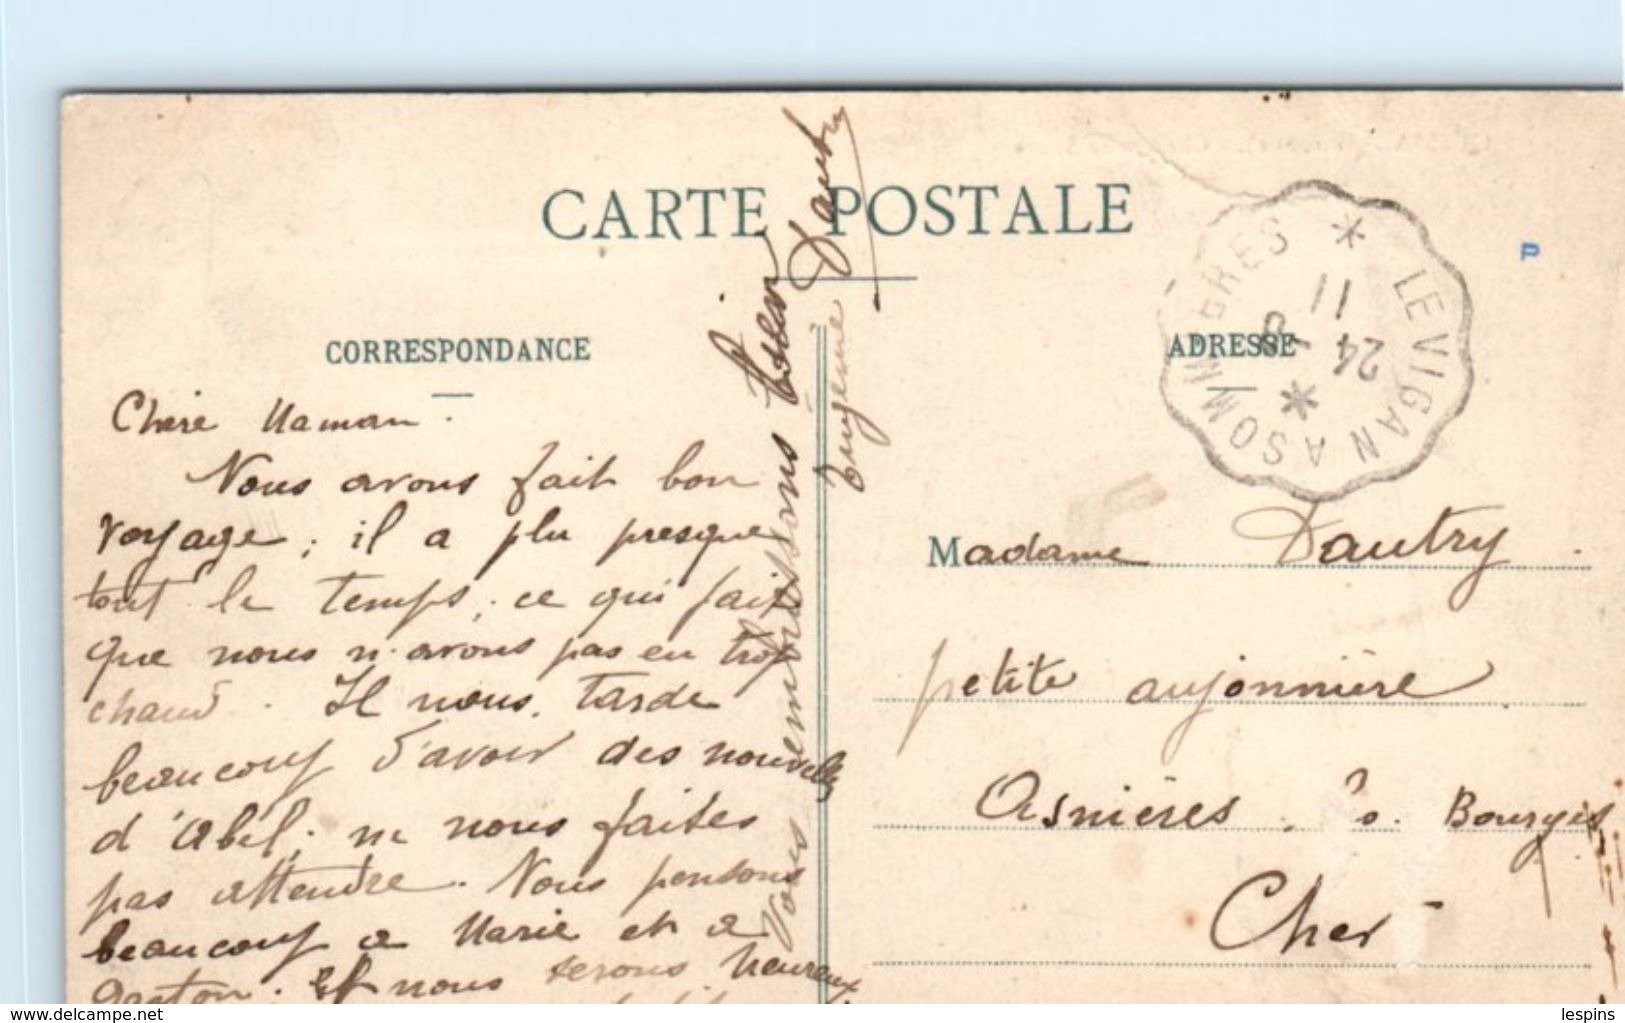 CARTE POSTALE
CORRESPONDANCE
Chère Maman.
Nous avons fait bon
voyage; il a plu presque
tout le temps, ce qui fait
que nous n'avons pas eu trop
chaud. Il nous tarde
beaucoup d'avoir des nouvelles
d'Abel; ne nous faites
pas attendre. Nous pensons
beaucoup à Marie et à
Gaston. Et nous serons heureux
Vous embrassons tous bien
Eugénie Dautry
ADRESSE
LE VIGAN A SOMMIÈRES
24
11
P
Madame Dautry
petite aujonnière
Asnières. Bourges
Cher
www.delcampe.net
lespins